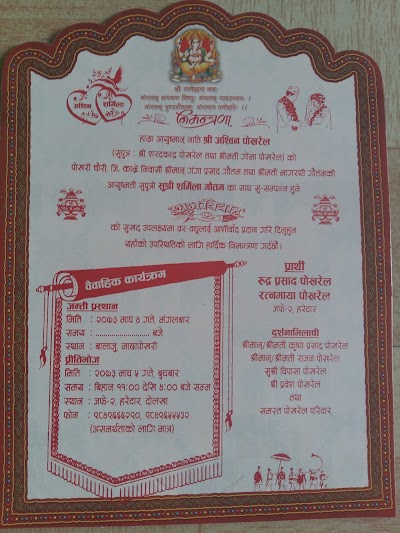 श्री गणेशाय नमः
मंगलम् भगवान विष्णुः मंगलम् गरुडध्वजः ।
मंगलम् पुण्डरीकाक्षः मंगलाय तनोहरिः ।।
अश्विन
शर्मिला
निमन्त्रणा
हाम्रा आयुष्मान् नाति श्री अश्विन पोखरेल
(सुपुत्र : श्री शरदचन्द्र पोखरेल तथा श्रीमती गोमा पोखरेल) को
पोखरी चौरी, जि. काभ्रे निवासी श्रीमान् गंगा प्रसाद गौतम तथा श्रीमती भागरथी गौतमकी
आयुष्मती सुपुत्री सुश्री शर्मिला गौतम का साथ सु-सम्पन्न हुने
शुभविवाह
को सुखद उपलक्ष्यमा वर-वधुलाई आशीर्वाद प्रदान गरि दिनुहुन
यहाँको उपस्थितिको लागि हार्दिक निमन्त्रणा गर्दछौं।
वैवाहिक कार्यक्रम
जन्ती प्रस्थान
मिति : २०७३ माघ ४ गते, मंगलबार
समय : ........................ बजे
स्थान : बालाजु, माछापोखरी
प्रीतिभोज
मिति : २०७३ माघ ५ गते, बुधबार
समय : बिहान ११:०० देखि ४:०० बजे सम्म
स्थान : जफे-२, हरेटार, दोलखा
फोन : ९८४१६६६२९०, ९८४१६५५४३२
(असमर्थताको लागि मात्र)
प्रार्थी
रुद्र प्रसाद पोखरेल
रत्नमाया पोखरेल
जफे-२, हरेटार
दर्शनाभिलाषी
श्रीमान्/श्रीमती कृष्ण प्रसाद पोखरेल
श्रीमान्/श्रीमती राजन पोखरेल
सुश्री विपासा पोखरेल
श्री प्रवेश पोखरेल
तथा
समस्त पोखरेल परिवार